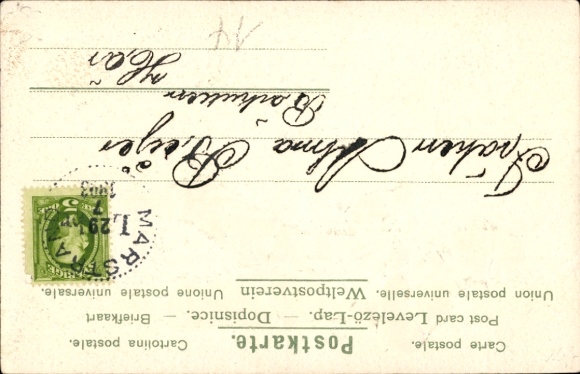 Postkarte.
Carte postale. Cartolina postale.
Post card Levelező-Lap. — Dopisnice. — Briefkaart
Union postale universelle. Weltpostverein Unione postale universale.
MARSTRAND
29 1
7
1903
5
Fröken Alma Beijer
Här
14